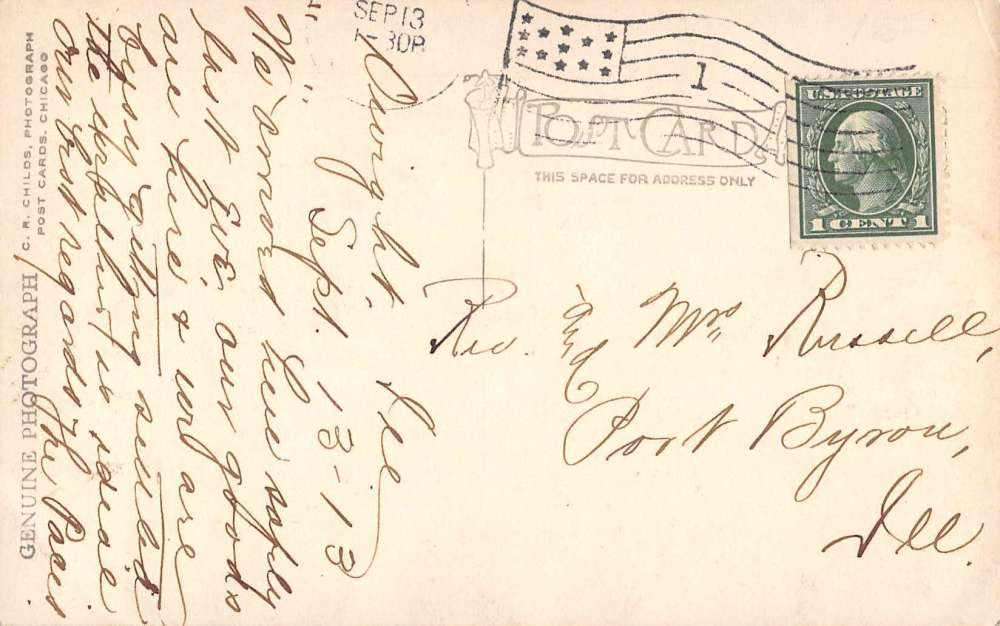 SEP 13
1-30P
1
POST CARD
THIS SPACE FOR ADDRESS ONLY
U.S. POSTAGE
1 CENT 1
Rev. and Mrs Russell,
Port Byron,
Ill.
Dwight. Ill
Sept. 13-13
We arrived here safely
last Eve. our goods
are here & we are
trying getting settled
the is ideal
our best regards The Paces.
GENUINE PHOTOGRAPH
C. R. CHILDS, PHOTOGRAPH
POST CARDS, CHICAGO